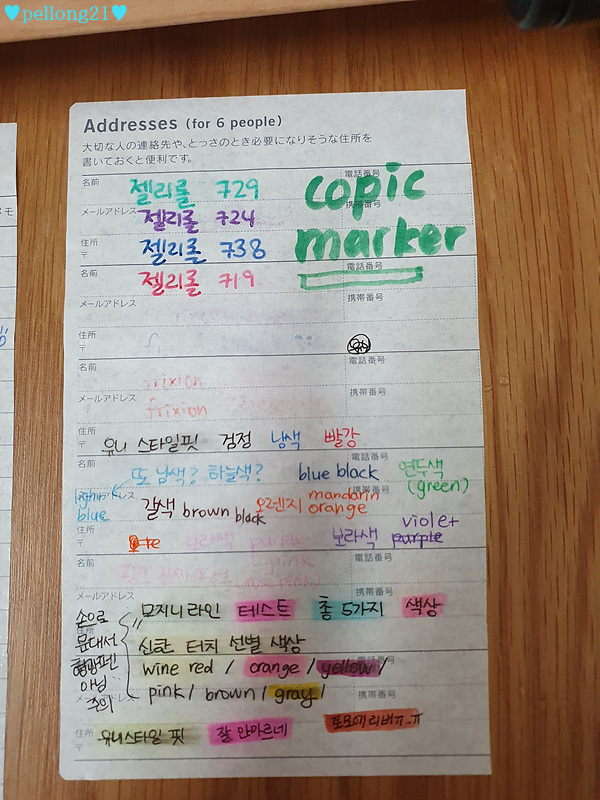 ♥pellong21♥
Addresses (for 6 people)
大切な人の連絡先や、とっさのとき必要になりそうな住所を
書いておくと便利です。
名前 젤리롤 729 電話番号
copic
メールアドレス 젤리롤 724 携帯番号
住所 젤리롤 738 marker
〒
名前 젤리롤 719 電話番号
メールアドレス 携帯番号
住所
〒
名前 frixion 電話番号
メールアドレス frixion 携帯番号
住所 유니 스타일핏 검정 남색 빨강
〒
名前 또 남색? 하늘색? blue black 연두색 電話番号
(green)
メールアドレス blue 갈색 brown black 오렌지 mandarin orange 携帯番号
住所 보라색 purple violet
〒
名前 電話番号
メールアドレス 携帯番号
손으로 모지니라인 테스트 총 5가지 색상
문대서 신한 터치 선별 색상
형광펜 wine red / orange / yellow /
아님 pink / brown / gray /
주의
名前 電話番号
携帯番号
住所 유니스타일 핏 잘 안마르네
〒